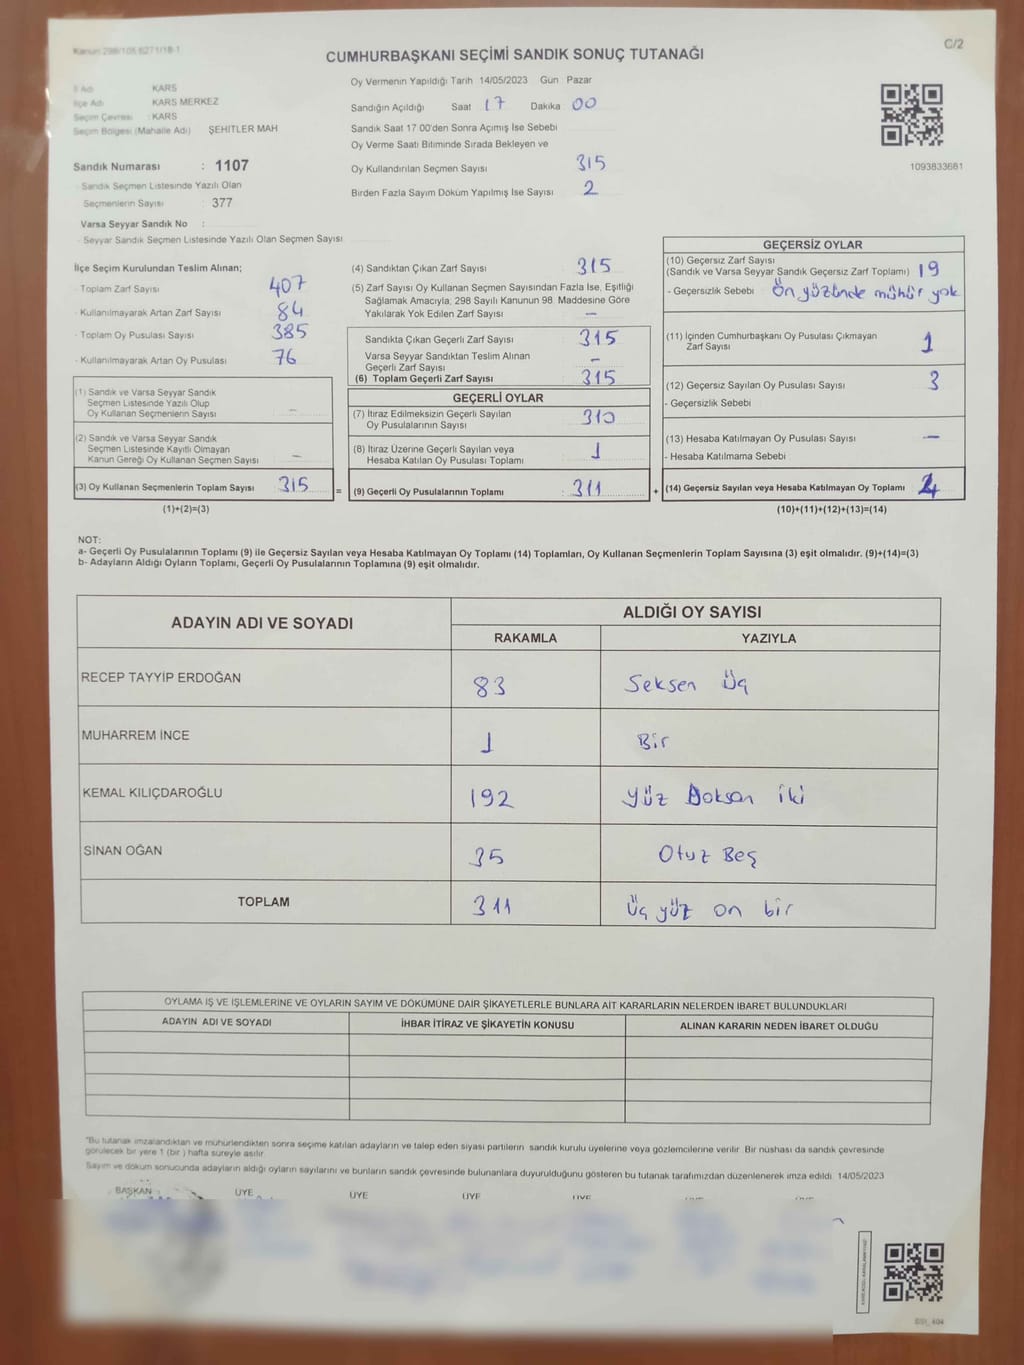 Kanun 298/105 6271/18-1
C/2
CUMHURBAŞKANI SEÇİMİ SANDIK SONUÇ TUTANAĞI
İl Adı KARS
İlçe Adı KARS MERKEZ
Seçim Çevresi : KARS
Seçim Bölgesi (Mahalle Adı) ŞEHİTLER MAH
Sandık Numarası : 1107
- Sandık Seçmen Listesinde Yazılı Olan
Seçmenlerin Sayısı 377
Varsa Seyyar Sandık No :
- Seyyar Sandık Seçmen Listesinde Yazılı Olan Seçmen Sayısı
Oy Vermenin Yapıldığı Tarih 14/05/2023 Gün Pazar
Sandığın Açıldığı Saat 17 Dakika 00
Sandık Saat 17 00'den Sonra Açımış İse Sebebi
Oy Verme Saati Bitiminde Sırada Bekleyen ve
Oy Kullandırılan Seçmen Sayısı 315
Birden Fazla Sayım Döküm Yapılmış İse Sayısı 2
1093833681
İlçe Seçim Kurulundan Teslim Alınan;
- Toplam Zarf Sayısı 407
- Kullanılmayarak Artan Zarf Sayısı 84
- Toplam Oy Pusulası Sayısı 385
- Kullanılmayarak Artan Oy Pusulası 76
(1) Sandık ve Varsa Seyyar Sandık
Seçmen Listesinde Yazılı Olup
Oy Kullanan Seçmenlerin Sayısı –
(2) Sandık ve Varsa Seyyar Sandık
Seçmen Listesinde Kayıtlı Olmayan
Kanun Gereği Oy Kullanan Seçmen Sayısı –
(3) Oy Kullanan Seçmenlerin Toplam Sayısı 315
(1)+(2)=(3)
(4) Sandıktan Çıkan Zarf Sayısı 315
(5) Zarf Sayısı Oy Kullanan Seçmen Sayısından Fazla İse, Eşitliği
Sağlamak Amacıyla, 298 Sayılı Kanunun 98. Maddesine Göre
Yakılarak Yok Edilen Zarf Sayısı –
Sandıkta Çıkan Geçerli Zarf Sayısı 315
Varsa Seyyar Sandıktan Teslim Alınan
Geçerli Zarf Sayısı –
(6) Toplam Geçerli Zarf Sayısı 315
GEÇERLİ OYLAR
(7) İtiraz Edilmeksizin Geçerli Sayılan
Oy Pusulalarının Sayısı 310
(8) İtiraz Üzerine Geçerli Sayılan veya
Hesaba Katılan Oy Pusulası Toplamı 1
= (9) Geçerli Oy Pusulalarının Toplamı : 311 +
GEÇERSİZ OYLAR
(10) Geçersiz Zarf Sayısı
(Sandık ve Varsa Seyyar Sandık Geçersiz Zarf Toplamı) 19
- Geçersizlik Sebebi Ön yüzünde mühür yok
(11) İçinden Cumhurbaşkanı Oy Pusulası Çıkmayan
Zarf Sayısı 1
(12) Geçersiz Sayılan Oy Pusulası Sayısı 3
- Geçersizlik Sebebi
(13) Hesaba Katılmayan Oy Pusulası Sayısı –
- Hesaba Katılmama Sebebi
(14) Geçersiz Sayılan veya Hesaba Katılmayan Oy Toplamı 4
(10)+(11)+(12)+(13)=(14)
NOT:
a- Geçerli Oy Pusulalarının Toplamı (9) ile Geçersiz Sayılan veya Hesaba Katılmayan Oy Toplamı (14) Toplamları, Oy Kullanan Seçmenlerin Toplam Sayısına (3) eşit olmalıdır. (9)+(14)=(3)
b- Adayların Aldığı Oyların Toplamı, Geçerli Oy Pusulalarının Toplamına (9) eşit olmalıdır.
ADAYIN ADI VE SOYADI ALDIĞI OY SAYISI
RAKAMLA YAZIYLA
RECEP TAYYİP ERDOĞAN 83 Seksen Üç
MUHARREM İNCE 1 Bir
KEMAL KILIÇDAROĞLU 192 Yüz Doksan iki
SİNAN OĞAN 35 Otuz Beş
TOPLAM 311 Üç yüz on bir
OYLAMA İŞ VE İŞLEMLERİNE VE OYLARIN SAYIM VE DÖKÜMÜNE DAİR ŞİKAYETLERLE BUNLARA AİT KARARLARIN NELERDEN İBARET BULUNDUKLARI
ADAYIN ADI VE SOYADI İHBAR İTİRAZ VE ŞİKAYETİN KONUSU ALINAN KARARIN NEDEN İBARET OLDUĞU
*Bu tutanak imzalandıktan ve mühürlendikten sonra seçime katılan adayların ve talep eden siyasi partilerin sandık kurulu üyelerine veya gözlemcilerine verilir. Bir nüshası da sandık çevresinde
görülecek bir yere 1 (bir ) hafta süreyle asılır.
Sayım ve döküm sonucunda adayların aldığı oyların sayılarını ve bunların sandık çevresinde bulunanlara duyurulduğunu gösteren bu tutanak tarafımızdan düzenlenerek imza edildi. 14/05/2023
BAŞKAN ÜYE ÜYE ÜYE ÜYE